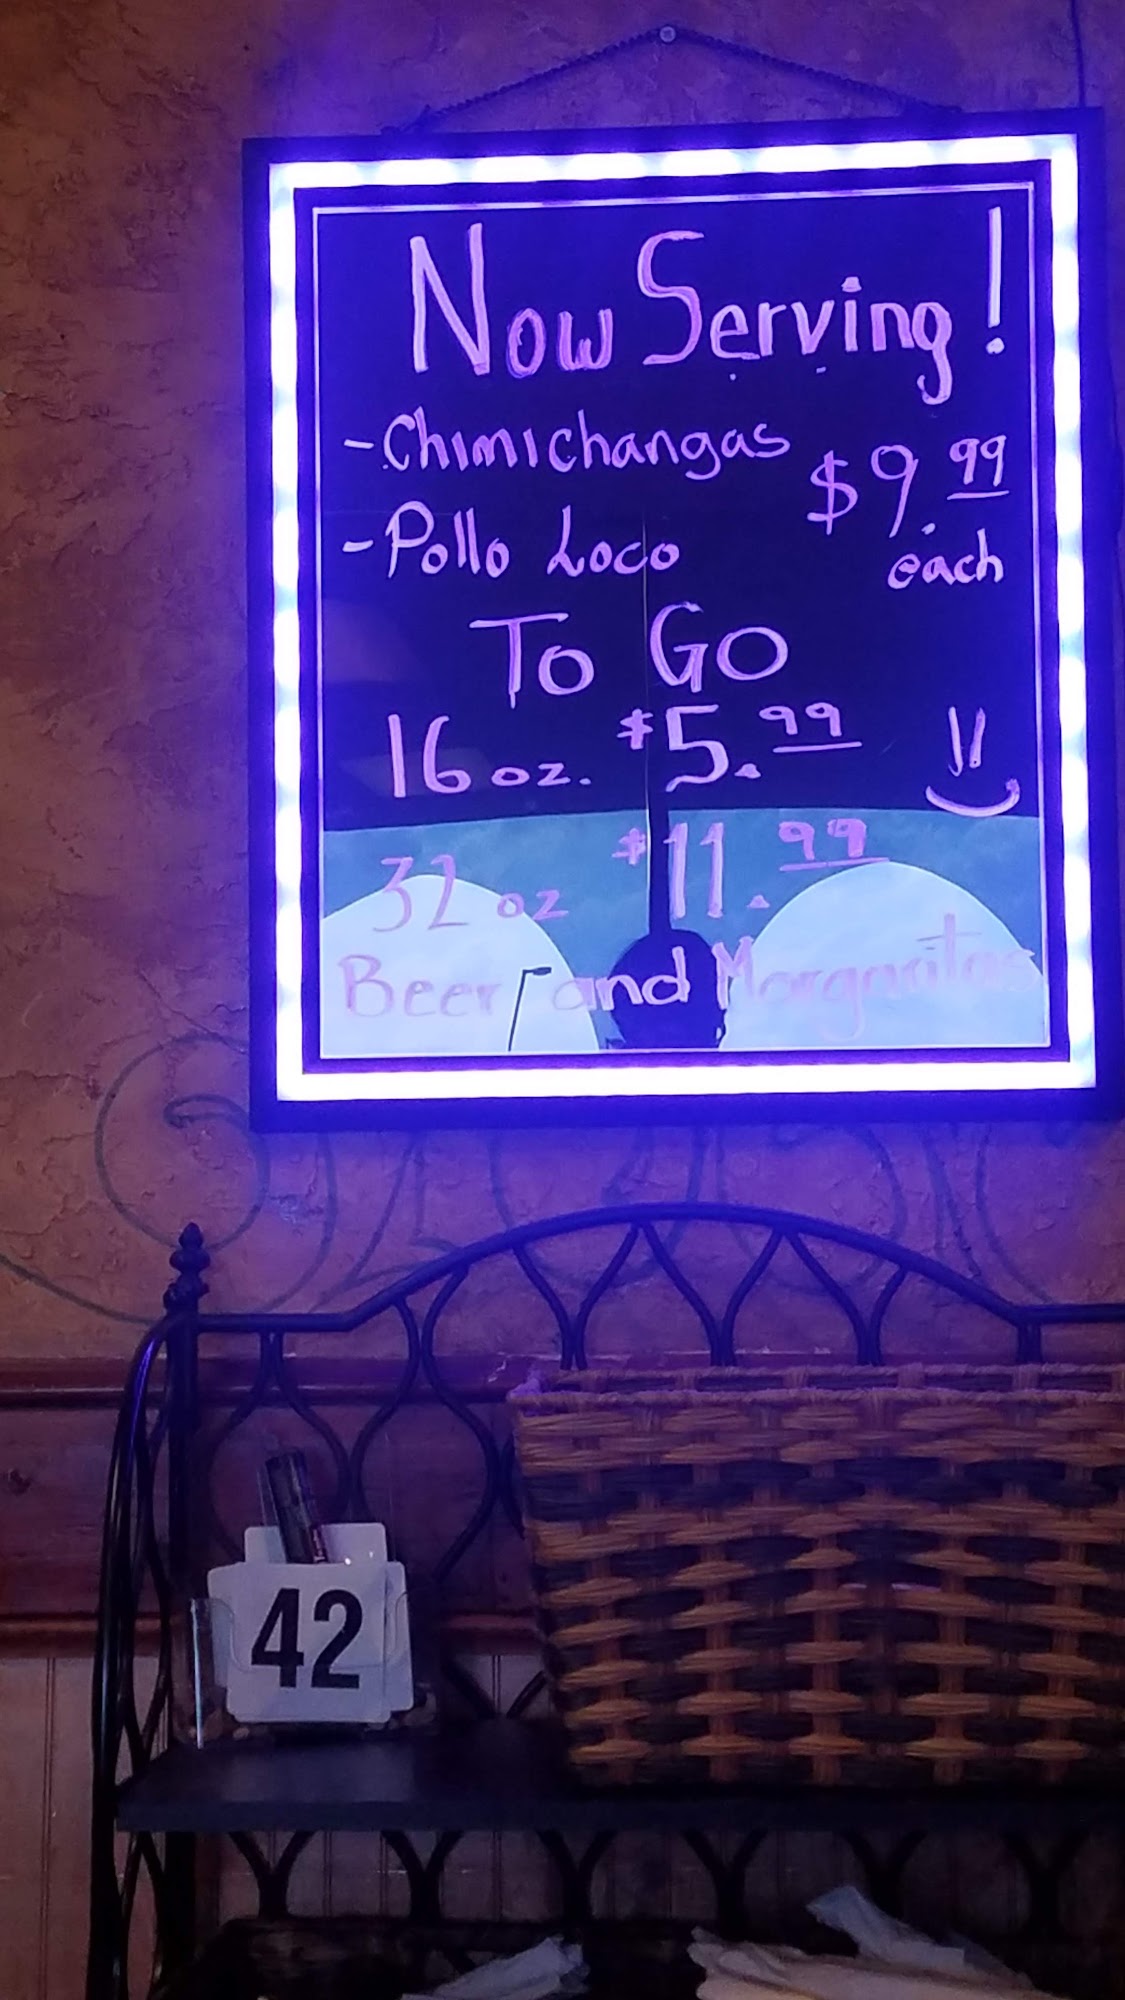 Now Serving!
- Chimichangas
$9.99
- Pollo Loco
each
To Go
16 oz. $5.99
32 oz $11.99
Beer and Margaritas
42